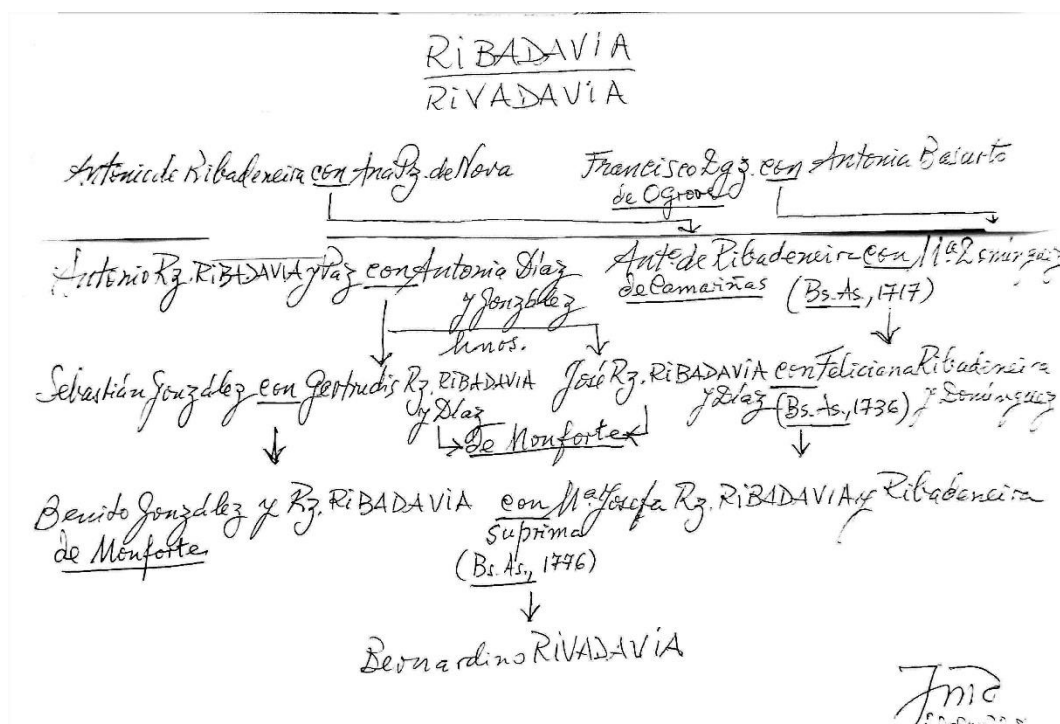 RiBADAViA
RiVADAViA
Antonio de Ribadeneira con Ana Pz. de Nova
Francisco Dgz. con Antonia Basurto
de O Grove
Antonio Rz. RiBADAViA y Paz con Antonia Díaz
y González
Antº de Ribadeneira con Mª Domínguez
de Camariñas (Bs. As., 1717)
hnos.
Sebastián González con Gertrudis Rz. RIBADAVIA
y Díaz
José Rz. RIBADAVIA con Feliciana Ribadeneira
y Díaz (Bs. As., 1736) y Domínguez
de Monforte
Benito González y Rz. RIBADAVIA con Mª Josefa Rz. RIBADAVIA y Ribadeneira
de Monforte
su prima
(Bs. As., 1776)
Bernardino RiVADAViA